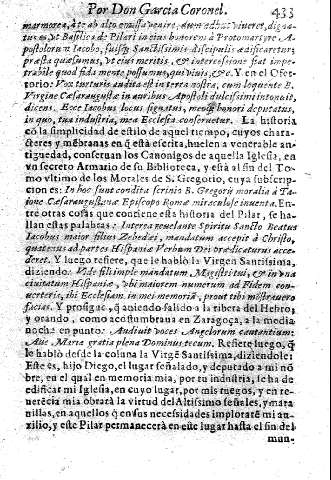 Por Don Garcia Coronel. 433
marmorea, & te ab alto emissa venire, dum adhuc viveret, digna-
tus es, vt Basilica de Pilari in eius honorem à Protomartyre. A-
postolorum Iacobo, suisq; Sanctissimis discipulis ædificaretur;
præsta quæsumus, vt eius meritis, & intercessione fiat impe-
trabile quod fida mente possumus, qui viuis, &c. Y en el Ofer-
torio: Vox turturis audita est in terra nostra, cum loquente B.
Virgine Cæsaraugustæ in auribus Apostoli dulcissimi intonuit,
dicens. Ecce Iacobus locus signatus, meoq; honori deputatus,
in quo, tua industria, mea Ecclesia conseruetur. La historia
cō la simplicidad de estilo de aquel tiempo, cuyos chara-
cteres y mēbranas en q̄ está escrita, huelen a venerable an-
tiguedad, conseruan los Canonigos de aquella Iglesia, en
vn secreto Armario de su Biblioteca, y està al fin del To-
mo vltimo de los Morales de S. Gregorio, cuya subscrip-
cion es: In hoc sunt condita scrinio B. Gregorij moralia à Ta-
ione Cæsaraugustano Episcopo Romæ miraculose inuenta. En-
tre otras cosas que contiene esta historia del Pilar, se ha-
llan estas palabras: Interea reuelante Spiritu Sancto Beatus
Iacobus maior filius Zebedæi, mandatum accepit à Christo,
quatenus ad partes Hispaniæ Verbum Dei prædicaturus acce-
deret. Y luego refiere, que le habló la Virgen Santissima,
diziendo: Vade fili imple mandatum Magistri tui, & in vna
ciuitatum Hispaniæ, vbi maiorem numerum ad Fidem con-
uerteris, ibi Ecclesiam in mei memoriã, prout tibi mōstrauero
facias. Y prosigue, q̄ auiendo salido a la ribera del Hebro,
y orando, como acostumbraua en Zaragoça, a la media
noche en punto: Audiuit voces Angelorum cantantium:
Aue Maria gratia plena Dominus tecum. Refiere luego, q̄
le habló desde la coluna la Virgẽ Santissima, diziendole:
Este es, hijo Diego, el lugar señalado, y deputado a mi nō
bre, en el qual en memoria mia, por tu industria, se ha de
edificar mi Iglesia, en cuyo lugar, por mis ruegos, y en re-
uerẽcia mia obrarà la virtud del Altissimo señales, y mara
uillas, en aquellos q̄ en sus necessidades imploratẽ mi au-
xilio, y este Pilar permanecerá en este lugar hasta el fin del
mun-